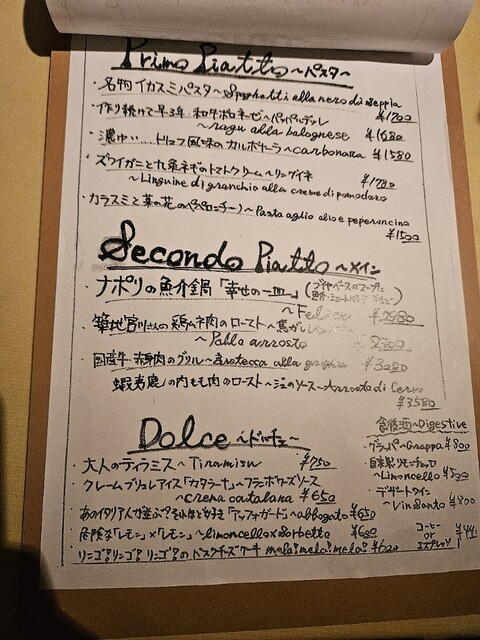 Primo Piatto ～パスタ～
・名物イカスミパスタ～Spaghetti alla nero di seppia ¥1200
・作り続けて早3年 和牛ボロネーゼ～パッパルデッレ
～ragu alla balognese ¥1680
・濃ゆい…トリュフ風味のカルボナーラ～carbonara ¥1580
・ズワイガニと九条ネギのトマトクリーム～リングイネ ¥1780
～Linguine di granchio alla creme di pomodoro
・カラスミと菜の花のペペロンチーノ～Pasta aglio olio e peperoncino
¥1500
Secondo Piatto ～メイン
・ナポリの魚介鍋「幸せの一皿」(ブイヤベースのスープと
～Felice ¥2980
・築地宮川さんの鶏ムネ肉のロースト～
～Pollo arrosto
・国産牛 赤身肉のグリル～ alla ¥3080
蝦夷鹿の内もも肉のロースト～ジュのソース～Arrosto di Cervo
¥3580
Dolce ～ドルチェ～
・大人のティラミス～Tiramisu ¥750
・クレームブリュレアイス「カタラーナ」～フランボワーズソース
～crena catalana ¥650
あのイタリア人が並ぶ?それほど好き「アッフォガード」～abbogato ¥650
・危険な「レモン」×「レモン」～limoncello×sorbetto ¥600
・リンゴ!リンゴ!リンゴ!のバスクチーズケーキ mela!mela!mela! ¥620
食後酒～Digestive
グラッパ～Grappa ¥800
自家製リモンチェッロ
～Limoncello ¥500
デザートワイン
～Vin Santo ¥800
コーヒー
or
エスプレッソ